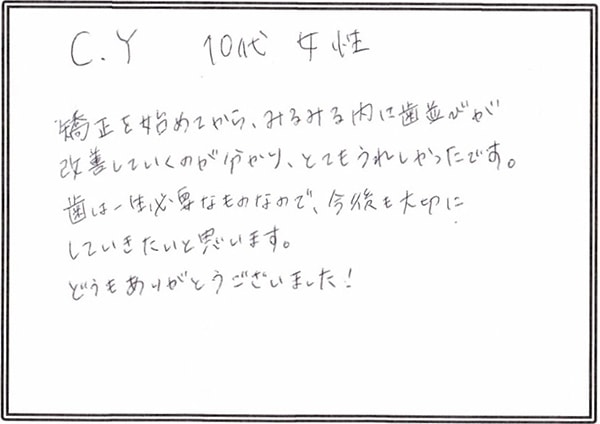 C.Y 10代 女性
矯正を始めてから、みるみる内に歯並びが
改善していくのが分かり、とてもうれしかったです。
歯は一生必要なものなので、今後も大切に
していきたいと思います。
どうもありがとうございました！